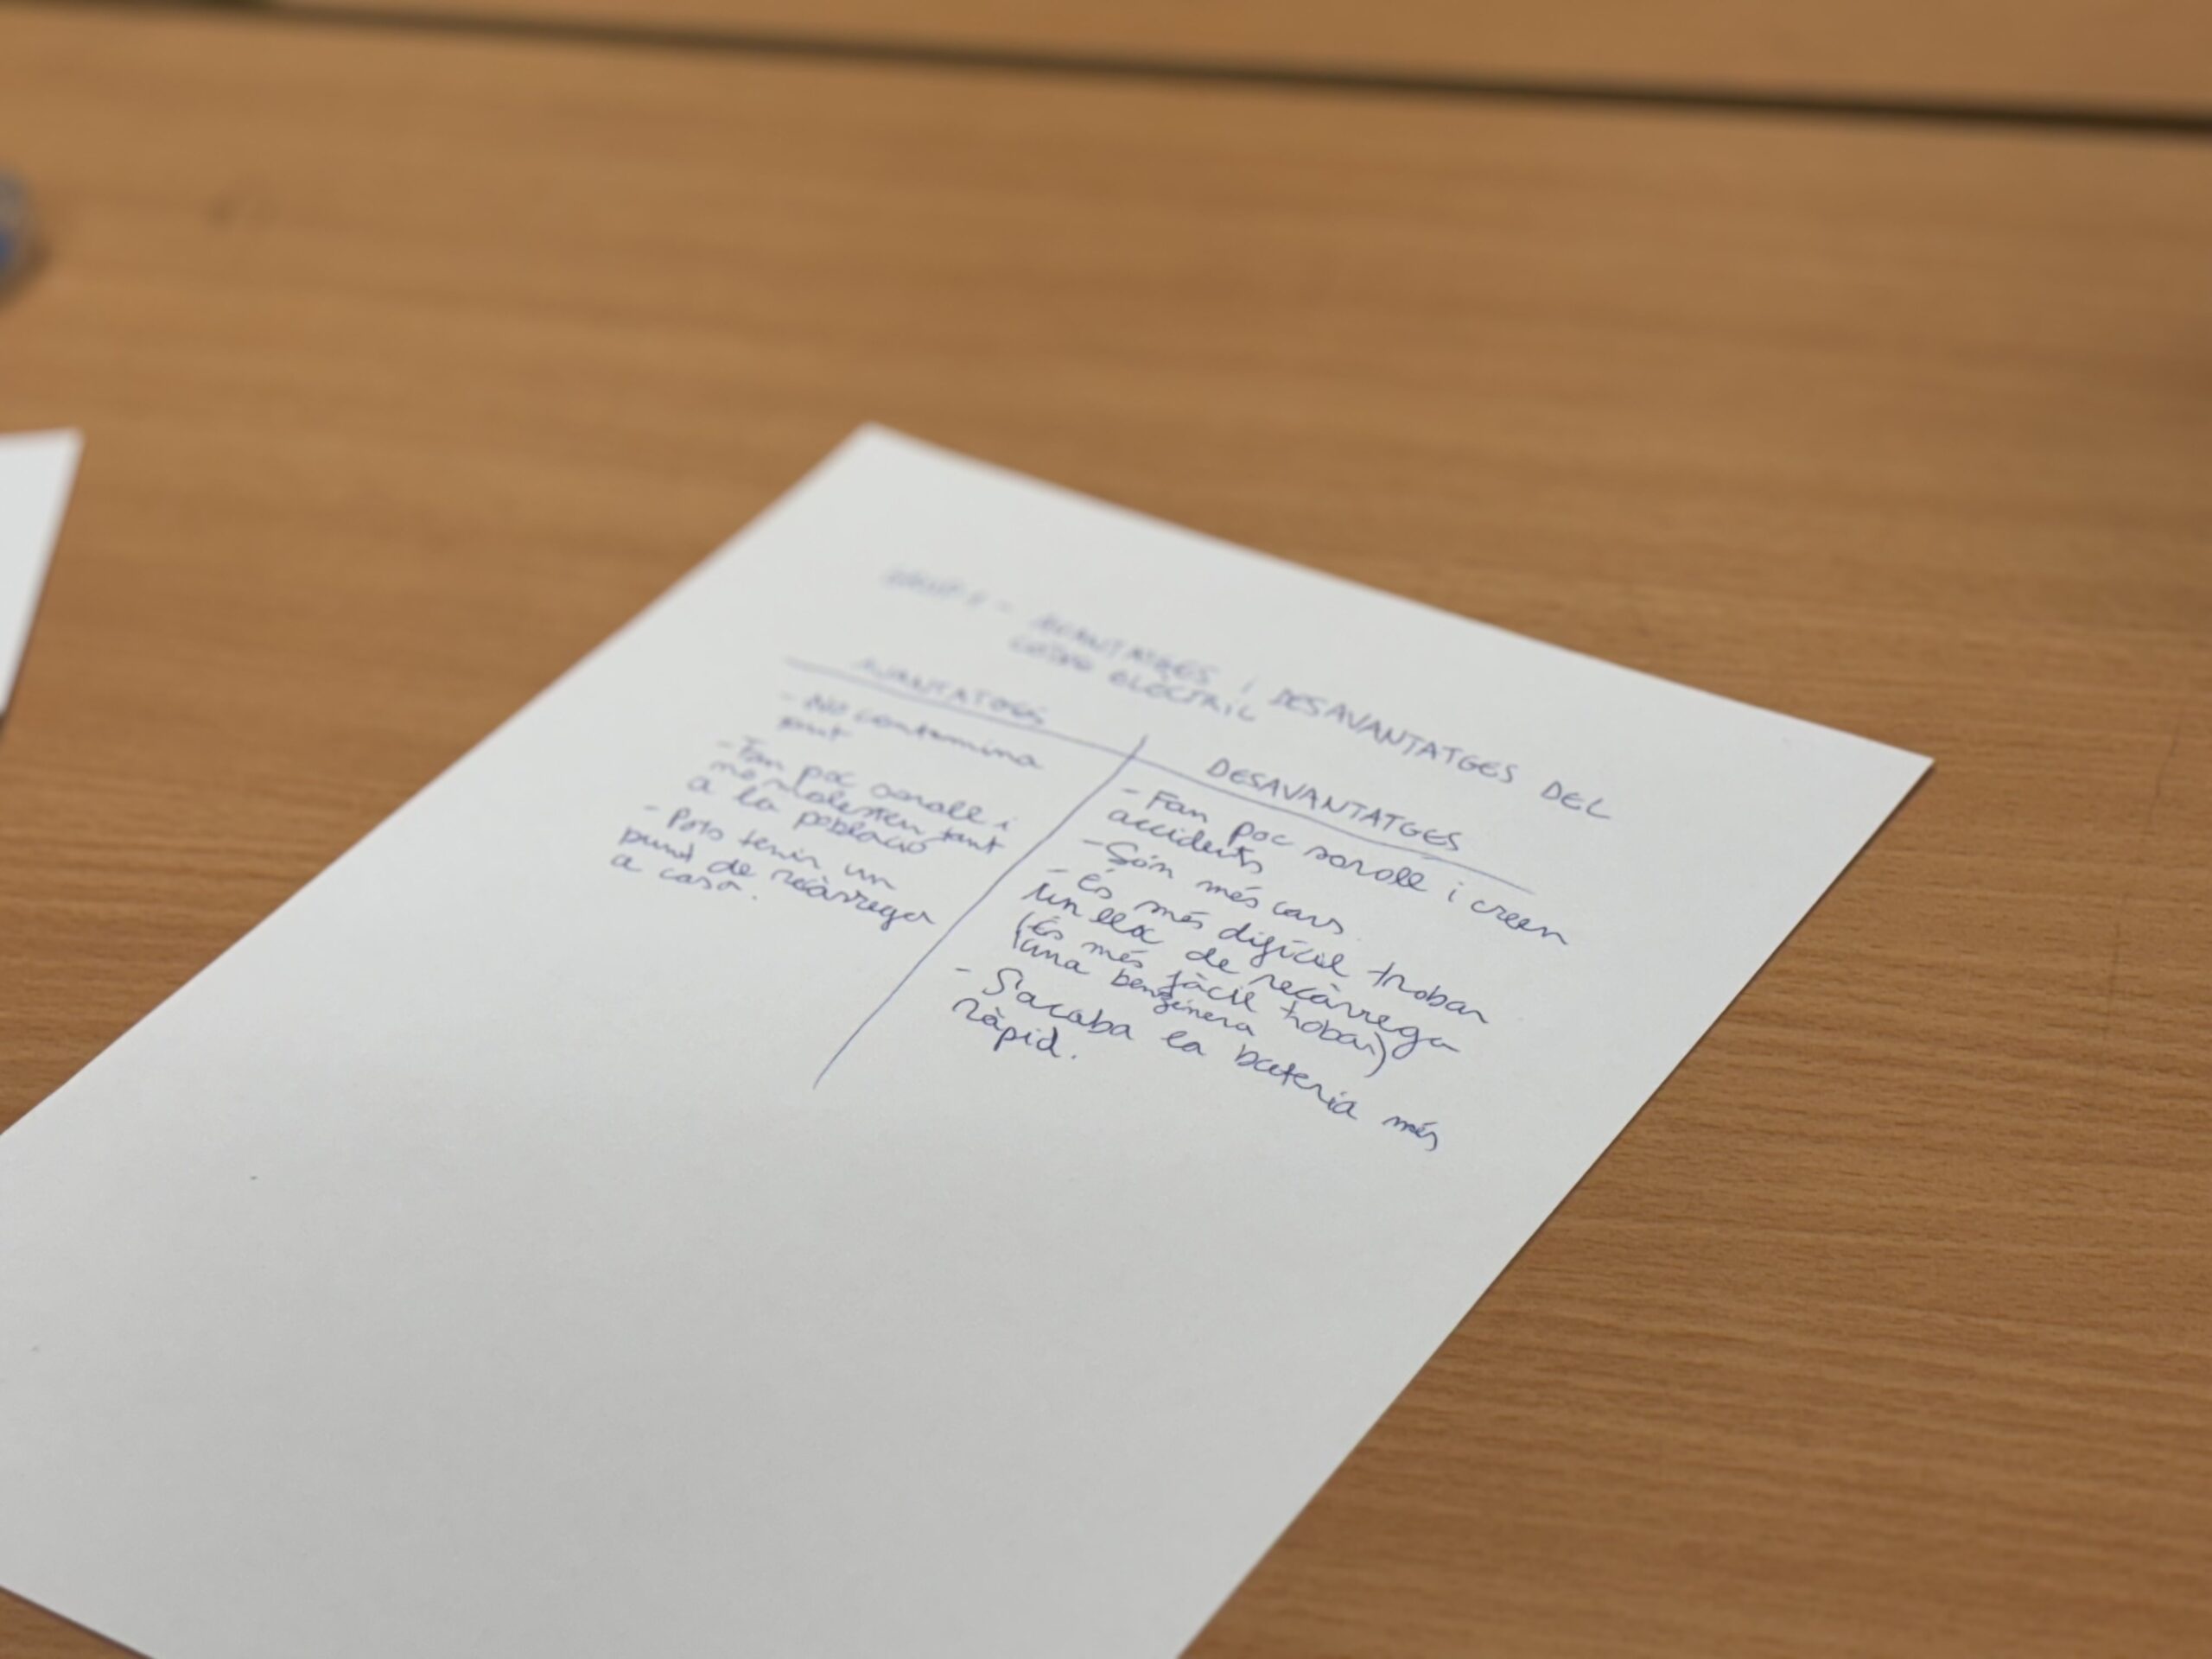 GRUP 1 - AVANTATGES i DESAVANTATGES DEL
COTXE ELÈCTRIC
AVANTATGES
- No contamina
tant
- Fan poc soroll i
no molesten tant
a la població
- Pots tenir un
punt de recàrrega
a casa.
DESAVANTATGES
- Fan poc soroll i creen
accidents
- Són més cars.
- És més difícil trobar
un lloc de recàrrega
(És més fàcil trobar)
una benzinera
- S'acaba la bateria més
ràpid.